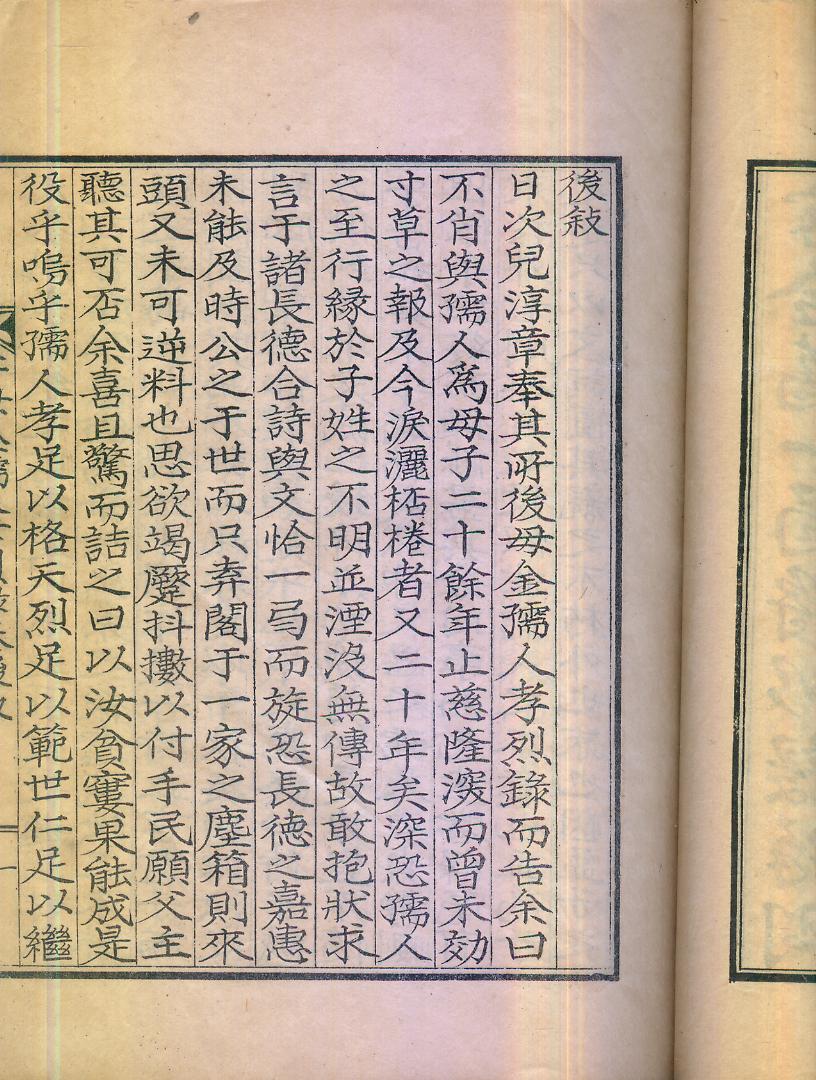 後敍
日次兒淳章奉其所後母金孺人孝烈錄而告余曰
不肖與孺人爲母子二十餘年止慈隆深而曾未効
寸草之報及今淚灑桮棬者又二十年矣深恐孺人
之至行緣於子姓之不明並湮沒無傳故敢抱狀求
言于諸長德合詩與文恰一弓而旋恐長德之嘉惠
未能及時公之于世而只弆閣于一家之塵箱則來
頭又未可逆料也思欲竭蹷抖擻以付手民願父主
聽其可否余喜且驚而詰之曰以汝貧窶果能成是
役乎嗚乎孺人孝足以格天烈足以範世仁足以繼